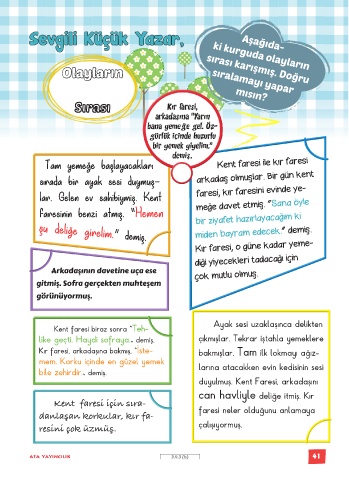 Sevgili Küçük Yazar,
Aşağıda-
ki kurguda olayların
sırası karışmış. Doğru
sıralamayı yapar
mısın?
Olayların
Sırası
Kır faresi,
arkadaşına "Yarın
bana yemeğe gel. Öz-
gürlük içinde huzurlu
bir yemek yiyelim."
demiş.
Tam yemeğe başlayacakları
sırada bir ayak sesi duymuş-
lar. Gelen ev sahibiymiş. Kent
faresinin benzi atmış. "Hemen
şu deliğe girelim." demiş.
Kent faresi ile kır faresi
arkadaş olmuşlar. Bir gün kent
faresi, kır faresini evinde ye-
meğe davet etmiş. "Sana öyle
bir ziyafet hazırlayacağım ki
miden bayram edecek." demiş.
Kır faresi, o güne kadar yeme-
diği yiyecekleri tadacağı için
çok mutlu olmuş.
Arkadaşının davetine uça ese
gitmiş. Sofra gerçekten muhteşem
görünüyormuş.
Kent faresi biraz sonra "Teh-
like geçti. Haydi sofraya." demiş.
Kır faresi, arkadaşına bakmış. "İste-
mem. Korku içinde en güzel yemek
bile zehirdir." demiş.
Ayak sesi uzaklaşınca delikten
çıkmışlar. Tekrar iştahla yemeklere
bakmışlar. Tam ilk lokmayı ağız-
larına atacakken evin kedisinin sesi
duyulmuş. Kent Faresi, arkadaşını
can havliyle deliğe itmiş. Kır
faresi neler olduğunu anlamaya
çalışıyormuş.
Kent faresi için sıra-
danlaşan korkular, kır fa-
resini çok üzmüş.
ATA YAYINCILIK
41